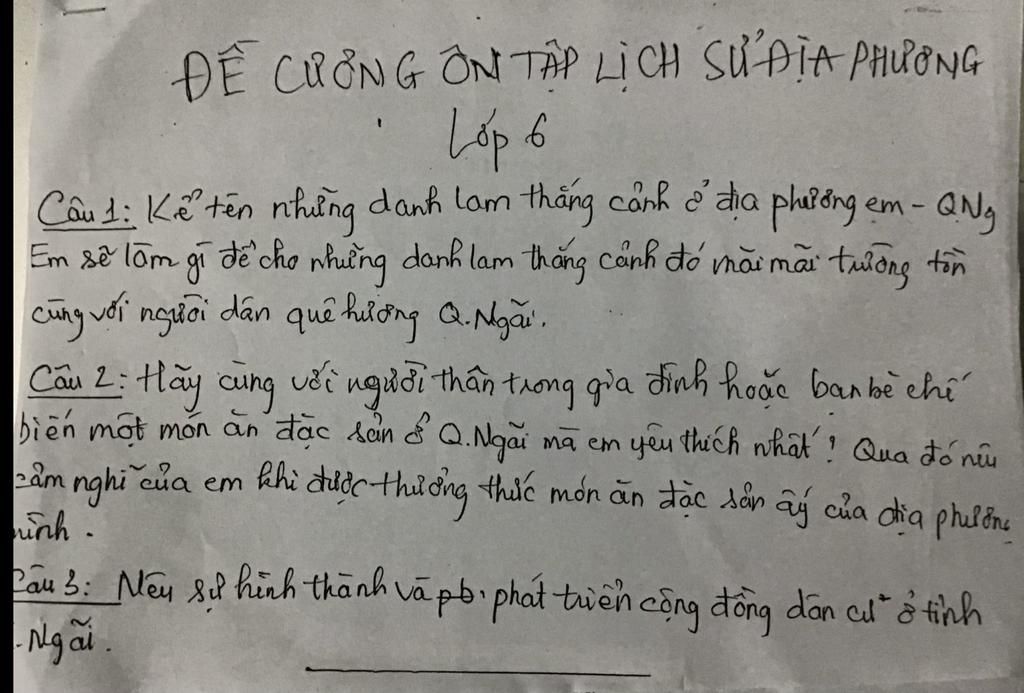 ĐỀ CƯƠNG ÔN TẬP LỊCH SỬ ĐỊA PHƯƠNG
Lớp 6
Câu 1: Kể tên những danh lam thắng cảnh ở địa phương em - QNg
Em sẽ làm gì để cho những danh lam thắng cảnh đó mãi mãi trường tồn
cùng với người dân quê hương Q.Ngãi.
Câu 2: Hãy cùng với người thân trong gia đình hoặc bạn bè chế
biến một món ăn đặc sản ở Q.Ngãi mà em yêu thích nhất! Qua đó nêu
cảm nghĩ của em khi được thưởng thức món ăn đặc sản ấy của địa phương
mình.
Câu 3: Nêu sự hình thành và pb. phát triển cộng đồng dân cư ở tỉnh
.Ngãi.